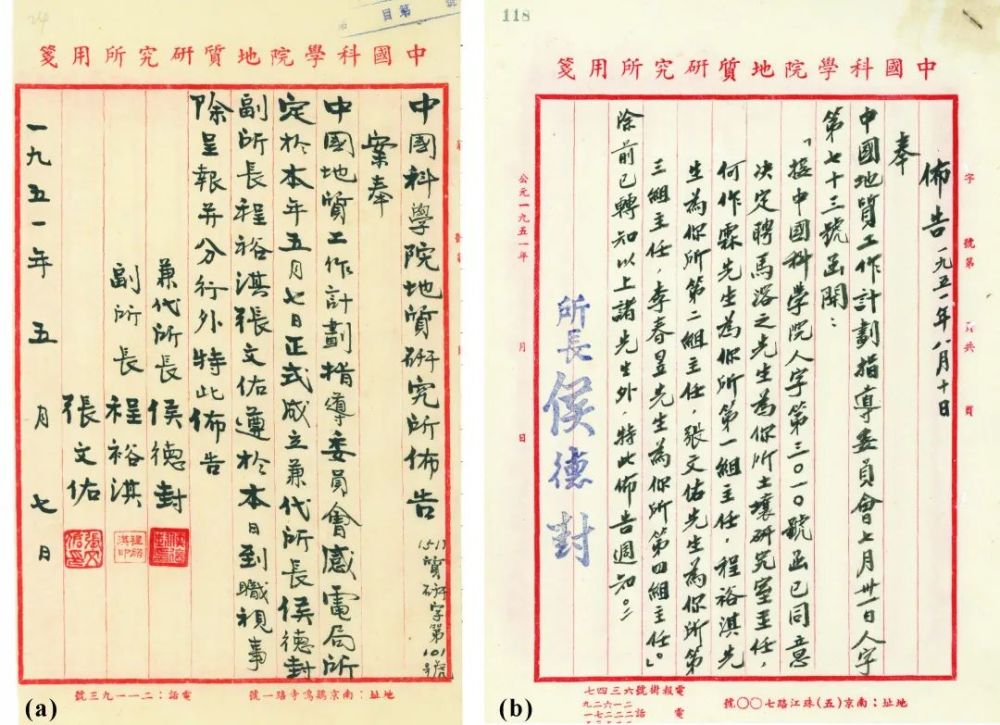 中國科學院地質研究所用箋
中國科學院地質研究所佈告
(51)質研字第101號
案奉
中國地質工作計劃指導委員會感電局所
定於本年五月七日正式成立兼代所長侯德封
副所長程裕淇張文佑遵於本日到職視事
除呈報并分行外特此佈告
兼代所長侯德封
副所長程裕淇
張文佑
一九五一年五月七日
地址：南京鷄鳴寺路一號
電話：二一一九三號
(a)
118
中國科學院地質研究所用箋
字 號第 頁共 頁
佈告 一九五一年八月十日
奉
中國地質工作計劃指導委員會七月卅一日人字
第七十三號函開：
「接中國科學院人字第三〇一〇號函已同意
決定聘馬溶之先生為你所土壤研究室主任，
何作霖先生為你所第一組主任，程裕淇先
生為你所第二組主任，張文佑先生為你所第
三組主任，李春昱先生為你所第四組主任。」
除前已轉知以上諸先生外，特此佈告週知。
所長侯德封
公元一九五一年 月 日
地址：南京(五)珠江路七〇〇號
電報掛號六三四七
電話
(b)